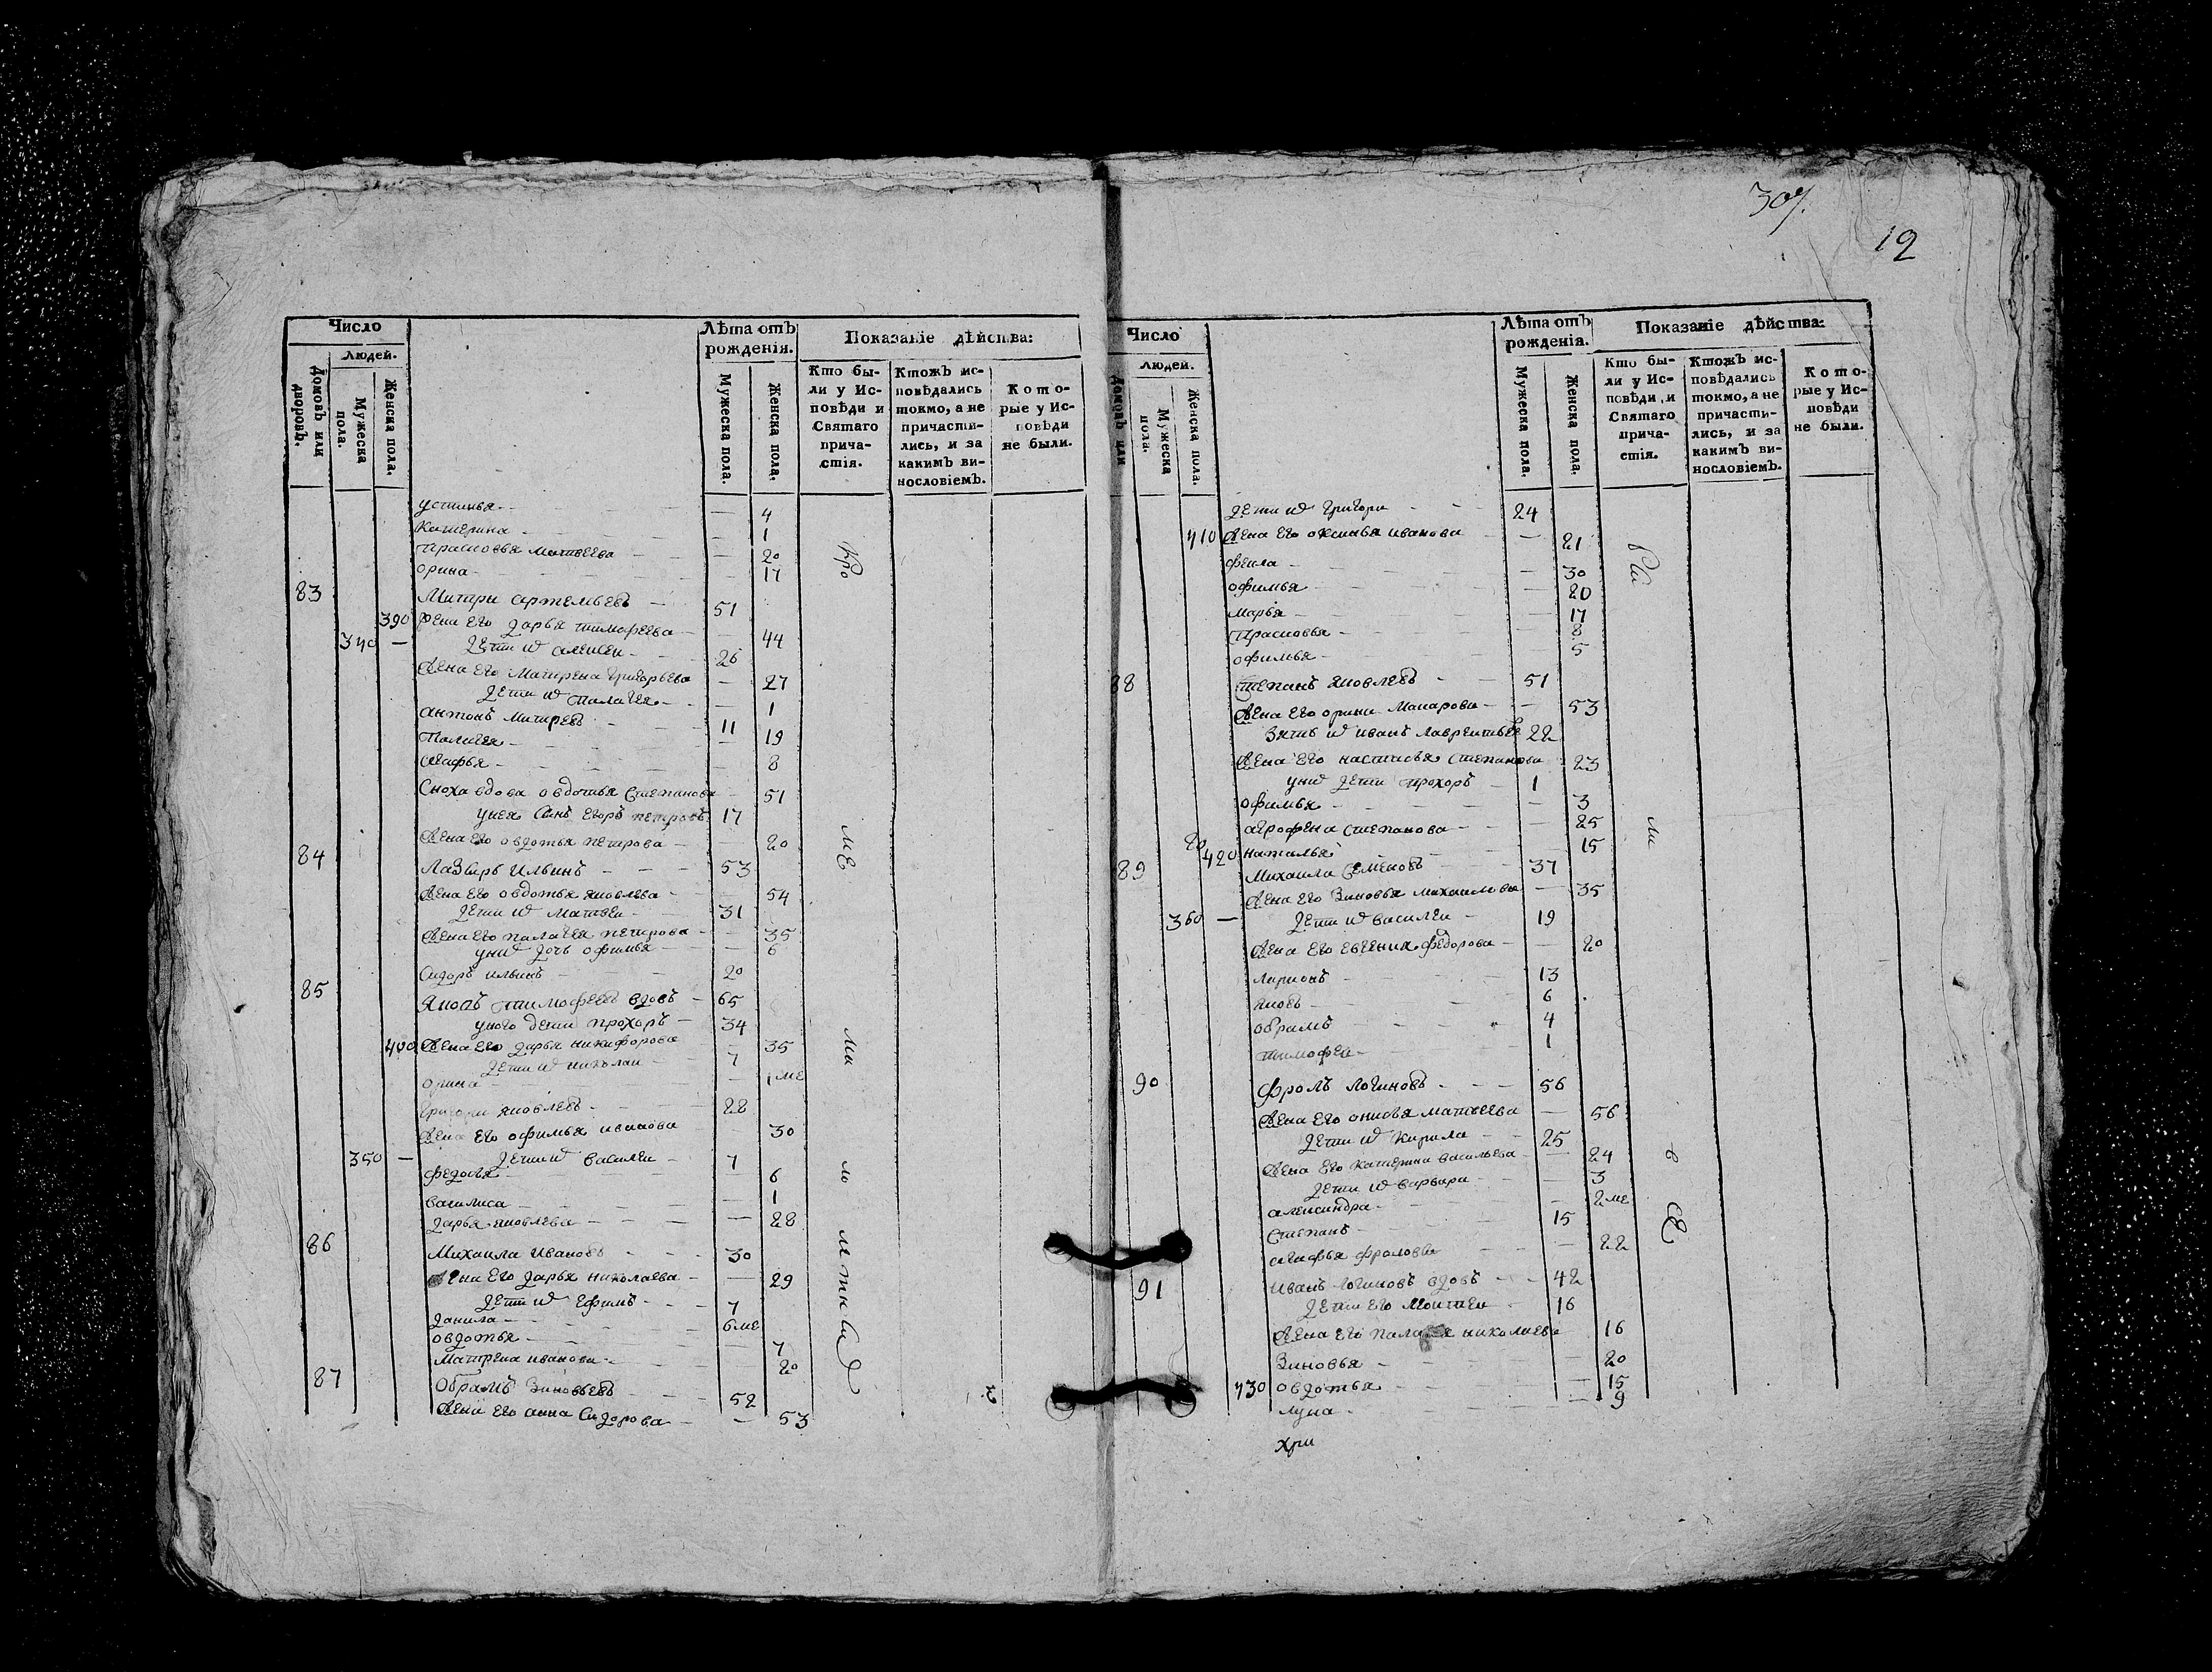 307.
12
Число
Людей.
Домовъ или дворовъ.
Мужеска пола.
Женска пола.
Лѣта отъ рожденія.
Мужеска пола.
Женска пола.
Показаніе дѣйства:
Кто бы-
ли у Ис-
повѣди и
Святаго
прича-
стія.
Ктожъ ис-
повѣдались
токмо, а не
причасти-
лись, и за
какимъ ви-
нословіемъ.
Кото-
рые у Ис-
повѣди
не были.
устинья - 4
Катерина - 1
Прасковья Матвеева - 20
орина - 17
83 Митри артемьевъ - 51
390 Жена его дарья тимофеева - 44
340 - дети их алексеи - 26
Жена его Матрена григорьева - 27
дети их Палагея - 1
антонъ Митревъ - 11
Палагея - 19
агафья - 8
Сноха вдова овдотья Степанова - 51
у нея Сынъ егоръ петровъ 17
Жена его овдотья петрова - 20
84 Лазарь Ильинъ - 53
Жена его овдотья яковлева - 54
дети их матвеи - 31
Жена его палагея петрова - 35
у них дочь офимья - 6
Сидоръ ильинъ - 20
85 Яковъ тимофеевъ вдовъ - 65
у него дети прохоръ - 34
400 Жена его дарья никифорова - 35
дети их николаи - 7
орина - 1 ме
григори яковлевъ - 28
Жена его офимья иванова - 30
350 - дети их василеи - 7
федосья - 6
василиса - 1
дарья яковлева - 28
86 Михаила Ивановъ - 30
Жена его дарья николаева - 29
дети их ефимъ - 7
данила - 6 ме
овдотья - 7
Матрена иванова - 20
87 Обрамъ Зиновьевъ - 52
Жена его анна Сидорова - 53
Число
Людей.
Домовъ или
Мужеска пола.
Женска пола.
Лѣта отъ рожденія.
Мужеска пола.
Женска пола.
Показаніе дѣйства:
Кто бы-
ли у Ис-
повѣди и
Святаго
прича-
стія.
Ктожъ ис-
повѣдались
токмо, а не
причасти-
лись, и за
какимъ ви-
нословіемъ.
Кото-
рые у Ис-
повѣди
не были.
дети их григори - 24
410 Жена его оксинья иванова - 21
фекла - 30
офимья - 20
марья - 17
Прасковья - 8
офимья - 5
88 Степанъ яковлевъ - 51
Жена его орина Макарова - 53
Зять их иванъ лаврентьев 22
Жена его настасья Степанова 23
у них дети прохоръ - 1
офимья - 3
агрофена степанова - 25
420 наталья - 15
89 Михаила Семеновъ - 37
Жена его Зиновья михаилова - 35
360 - дети их василеи - 19
Жена его евгения федорова - 20
ларионъ - 13
яковъ - 6
обрамъ - 4
тимофеи - 1
90 Фролъ логиновъ - 56
Жена его анисья матвеева - 56
дети их кирила - 25
Жена его катерина васильева - 24
дети их варвара - 3
александра - 2 ме
Степанъ - 15
агафья фролова - 22
91 иванъ логиновъ вдовъ - 42
дети его - 16
Жена его палагея николаева 16
Зиновья - 20
430 овдотья - 15
лукия - 9
хри